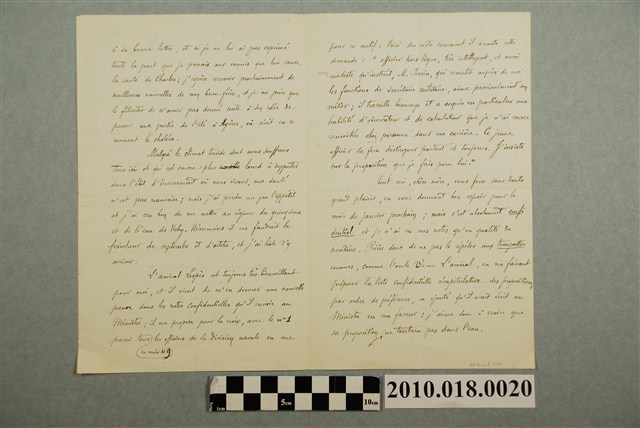 à sa bonne lettre, et si je ne lui ai pas exprimé
toute la part que je prenais aux ennuis que lui cause
la santé de Charles; j'espère recevoir prochainement de
meilleures nouvelles de mon beau frère, et je ne puis que
le féliciter de n'avoir pas donné suite à son idée de
passer une partie de l'été à Hyères, où sévit en ce
moment le choléra.
Malgré le climat torride dont nous souffrons
tous ici et qui est encore plus lourd à supporter
dans l'état d'énervement où nous vivons, ma santé
n'est pas mauvaise; mais j'ai perdu un peu l'appétit
et j'ai cru bon de me mettre au régime du quinquina
et de l'eau de Vichy. Néanmoins il me faudrait la
fraîcheur de septembre et d'octobre, et j'ai hâte d'y
arriver.
L'amiral Lespès est toujours très bienveillant
pour moi, et il vient de m'en donner une nouvelle
preuve dans les notes confidentielles qu'il envoie au
Ministre; il me propose pour la croix, avec le nº 1
parmi tous les officiers de la Division navale en me
pour ce motif. Voici du reste comment il annote cette
demande: " officier hors lignes, très intelligent, et aussi
modeste qu'instruit, M. , qui remplit auprès de moi
les fonctions de secrétaire militaire, aime passionnément son
métier; il travaille beaucoup et a acquis en particulier une
habileté d'observateur et de calculateur que je n'ai encore
rencontrée chez personne dans ma carrière. Ce jeune
officier se fera distinguer partout et toujours. J'insiste
sur la proposition que je fais pour lui."
Tout ceci, chère mère, vous fera sans doute
grand plaisir, en vous donnant bon espoir pour le
mois de janvier prochain; mais c'est absolument confi
dentiel et je n'ai eu mes notes qu'en qualité de
secrétaire. Prière donc de ne pas le répéter aux trompettes
connues, comme l'oncle . L'amiral, en me faisant
préparer la liste confidentielle récapitulative des propositions,
par ordre de préférence, a ajouté qu'il avait écrit au
Ministre en ma faveur; j'aime donc à croire que
sa proposition ne tombera pas dans l'eau.
5cm
10cm
2010.018.0020